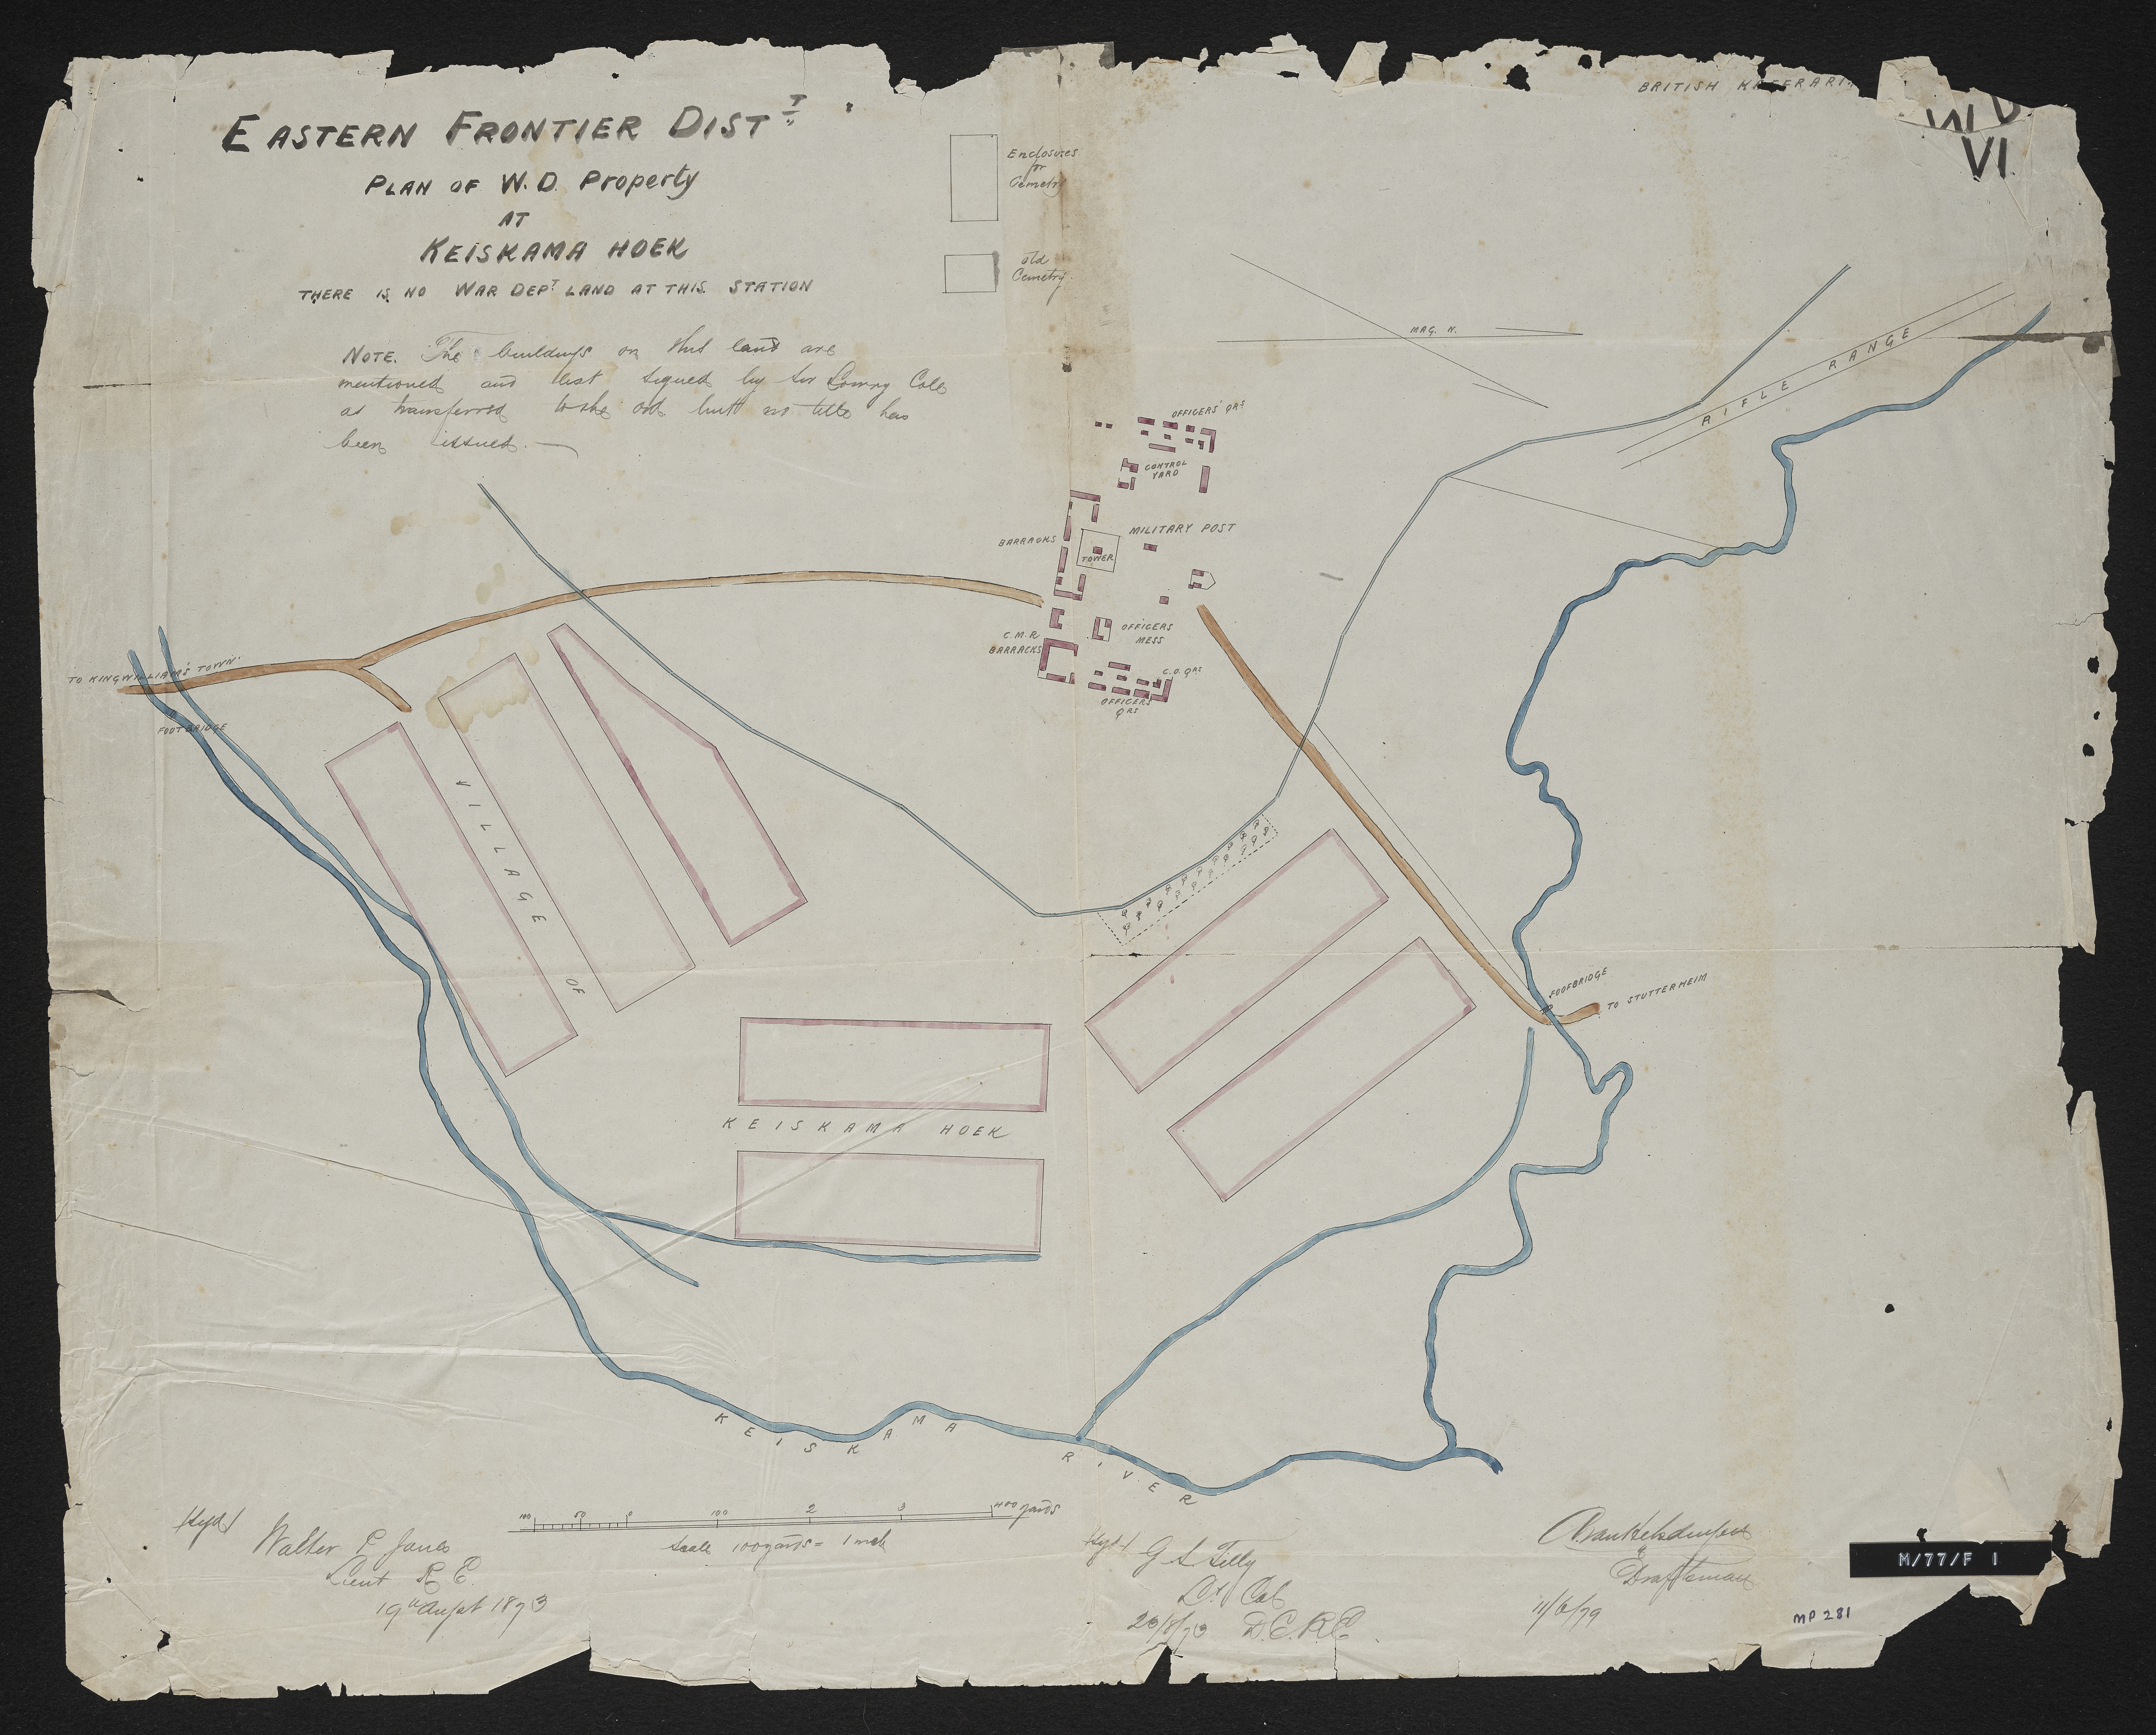 BRITISH KAFFRARI
W D
VI.
EASTERN FRONTIER DIST T
PLAN OF W.D. Property
AT
KEISKAMA HOEK
THERE IS NO WAR DEPT LAND AT THIS STATION
NOTE. The buildings on this land are
mentioned and list signed by Sir Lowry Cole
as transferred to the ord but no title has
been issued.
Enclosures
for
Cemetry
Old
Cemetry
MAG. N.
RIFLE RANGE
OFFICERS' QRS
CONTROL
YARD
MILITARY POST
BARRACKS
TOWER
C.M.R
BARRACKS
OFFICERS
MESS
C.O. QRS
OFFICERS
QRS
TO KINGWILLIAM'S TOWN
FOOTBRIDGE
VILLAGE OF
KEISKAMA HOEK
FOOTBRIDGE
TO STUTTERHEIM
KEISKAMA RIVER
100 50 0 100 2 3 400 yards
Scale 100 yards = 1 inch
Walter E Jones
Lieut R E.
19th August 1873
G S Tilly
Lt Col
23/8/73 D.C.R.E.
Draftsman
11/6/79
M/77/F 1
MP 281